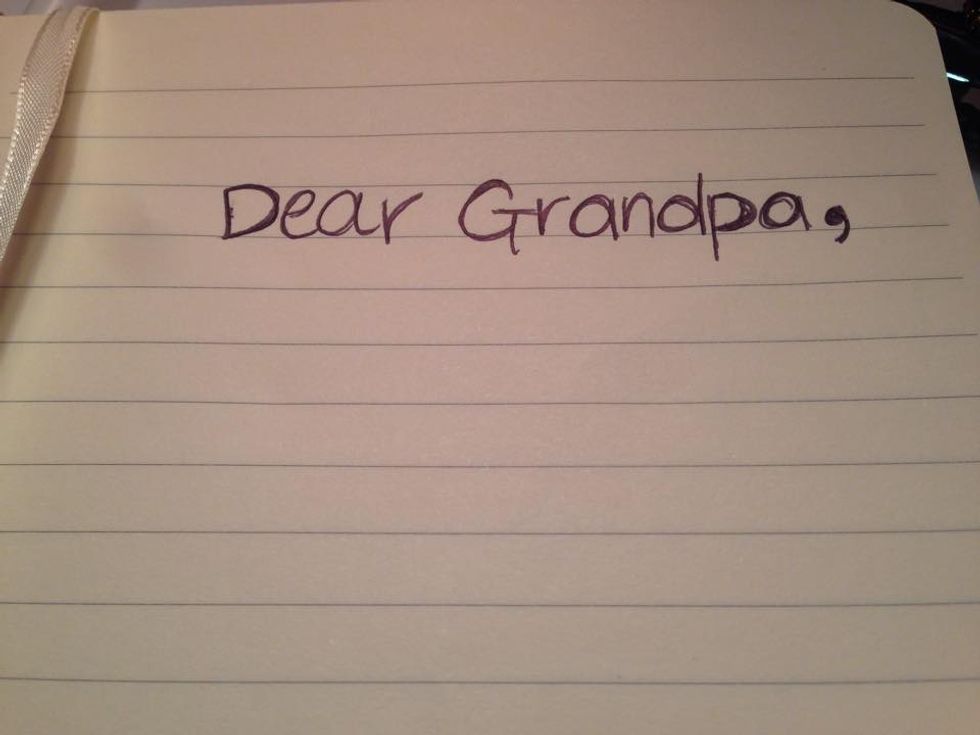 Dear Grandpa,